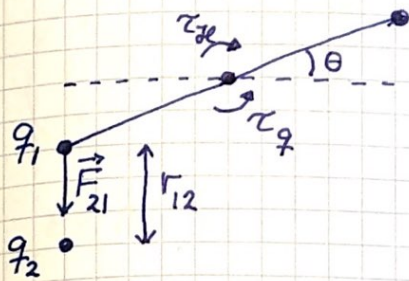 τ_H
θ
τ_q
q₁
F⃗₂₁
r₁₂
q₂